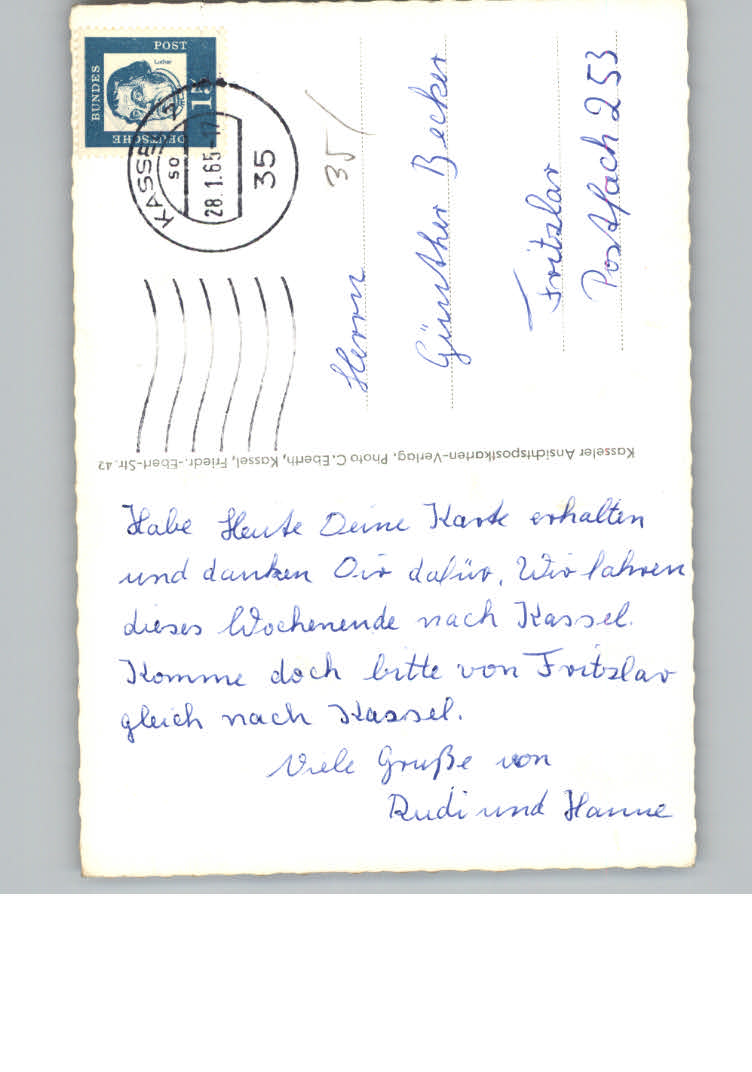 DEUTSCHE
BUNDES
POST
Luther
15
KASSEL
so
28.1.65-17
35
35/
Herrn
Günther Becker
Fritzlar
Postfach 253
Kasseler Ansichtspostkarten-Verlag. Photo C. Eberth, Kassel, Friedr.-Ebert-Str. 42
Habe Heute Deine Karte erhalten
und danken Dir dafür. Wir fahren
dieses Wochenende nach Kassel.
Komme doch bitte von Fritzlar
gleich nach Kassel.
Viele Grüße von
Rudi und Hanne